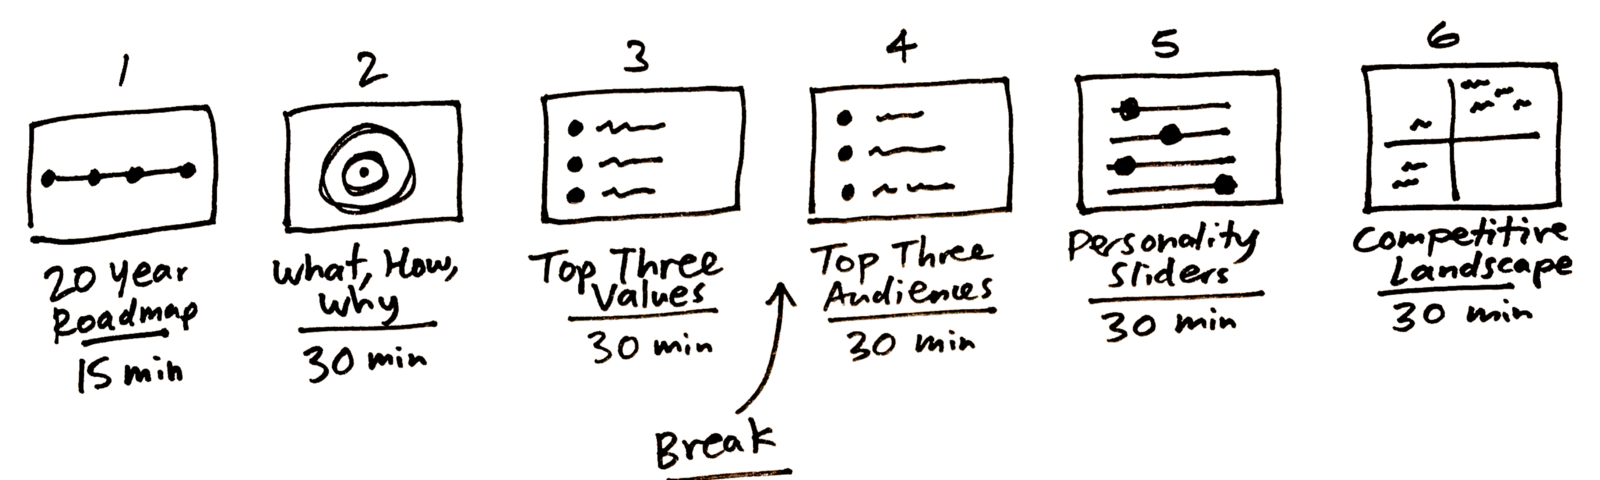 1
20 year
Roadmap
15 min
2
What, How,
Why
30 min
3
Top Three
Values
30 min
4
Top Three
Audiences
30 min
5
Personality
Sliders
30 min
6
Competitive
Landscape
30 min
Break